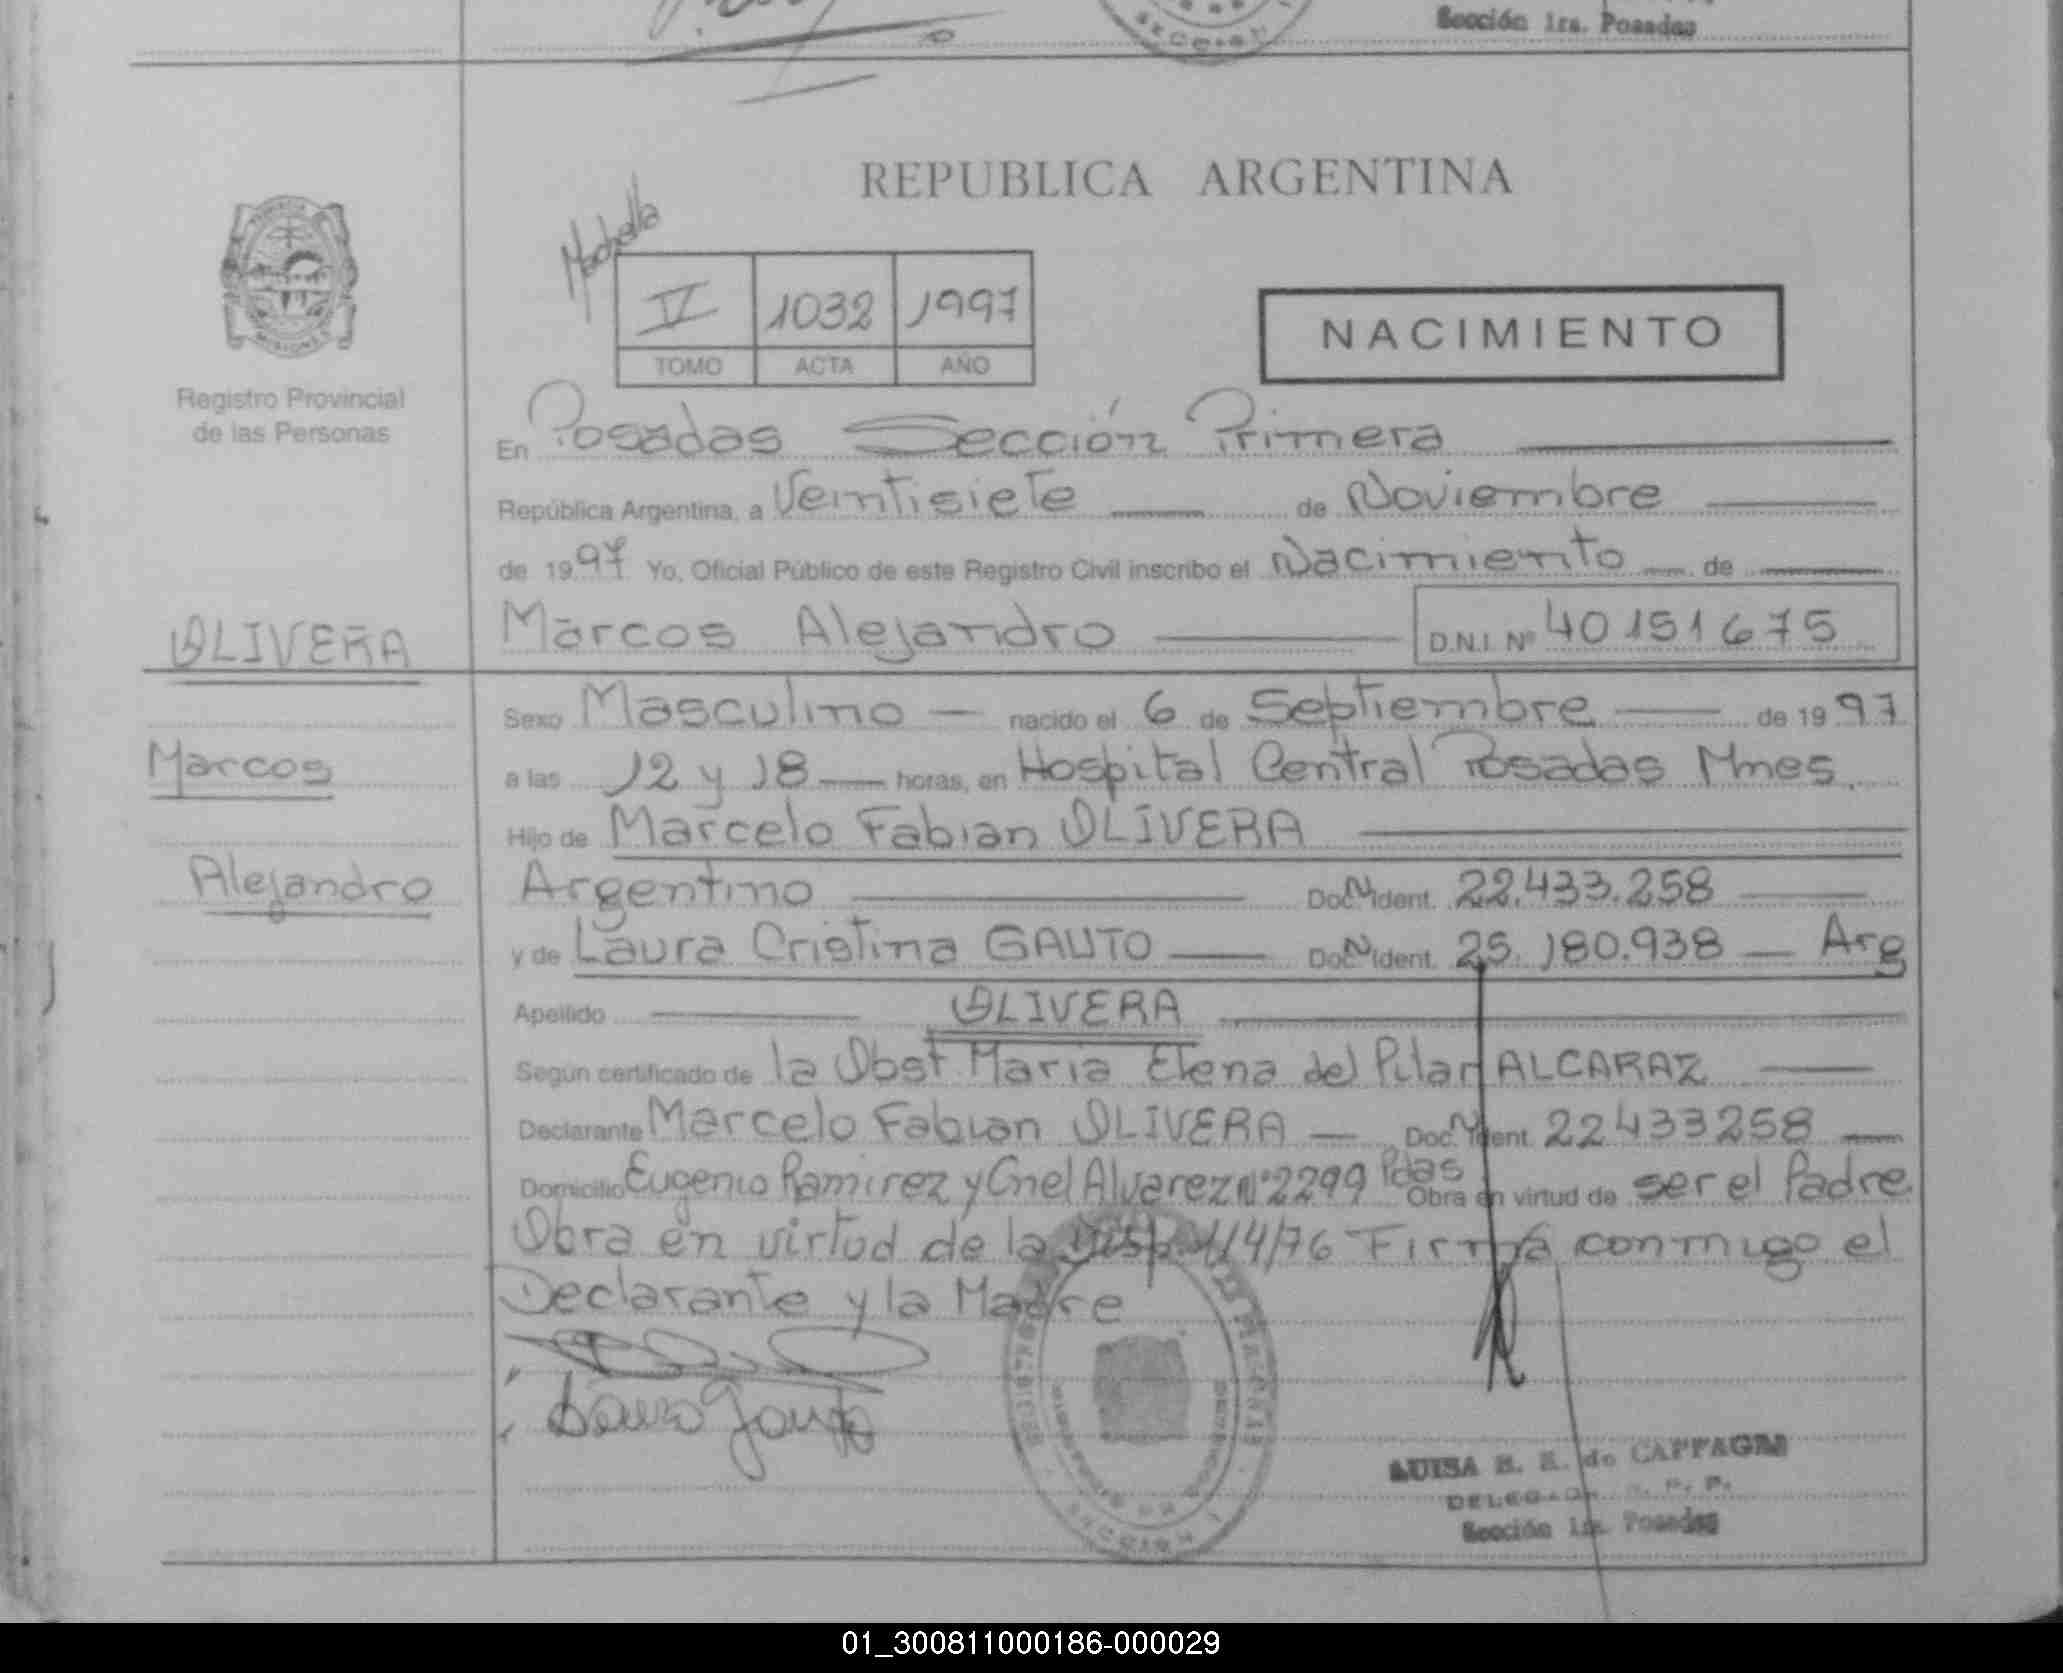 Sección 1ra. Posadas
REPUBLICA ARGENTINA
Registro Provincial
de las Personas
IV 1032 1997
TOMO ACTA AÑO
NACIMIENTO
En Posadas Sección Primera
República Argentina, a Veintisiete de Noviembre
de 1997 Yo, Oficial Público de este Registro Civil inscribo el Nacimiento de
OLIVERA
Marcos Alejandro D.N.I. Nº 40151675
Sexo Masculino nacido el 6 de Septiembre de 1997
Marcos
a las 12 y 18 horas, en Hospital Central Posadas Mnes.
Hijo de Marcelo Fabian OLIVERA
Alejandro
Argentino Doc. N Ident. 22.433.258
y de Laura Cristina GAUTO Doc. N Ident. 25.180.938 Arg
Apellido OLIVERA
Según certificado de la Obst. Maria Elena del Pilar ALCARAZ
Declarante Marcelo Fabian OLIVERA Doc. N Ident. 22433258
Domicilio Eugenio Ramirez y Cnel Alvarez Nº 2299 Pdas Obra en virtud de ser el Padre
Obra en virtud de la Disp. 114/76 Firma conmigo el
Declarante y la Madre
Laura Gauto
LUISA de CAFFAGNI
R. P. P.
Sección 1ra. Posadas
01_300811000186-000029